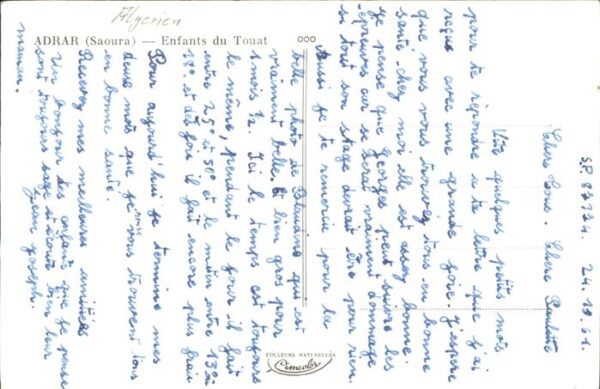 Algerien
ADRAR (Saoura) — Enfants du Touat
S.P. 87.731. 24.10.61.
Chers Tous. Chere Paulette
Vite quelques petits mots
pour te répondre a ta lettre que j'ai
reçus avec une grande joie. j'espère
que vous vous trouvez tous en bonne
santé. chez moi elle est assez bonne
je pense que Georges peut suivre les
épreuves car se serait vraiment dommage
si tout son stage devrait être pour rien.
Aussi je te remercie pour la
belle photo de qui est
vraiment belle et bien gros pour
3 mois ½. Ici le temps est toujours
le même, pendant le jour il fait
entre 25 et 30° et le matin entre 13 et
18° et des fois il fait encore plus frais
Pour aujourd'hui je termine mes
deux mots que je vous trouvent tous
en bonne santé.
Recevez mes meilleurs amitiés
Un bonjour des enfants que je pense
sont toujours sage et écoute bien leur
maman. Jean joseph.
COULEURS NATURELLES
Cimcolor